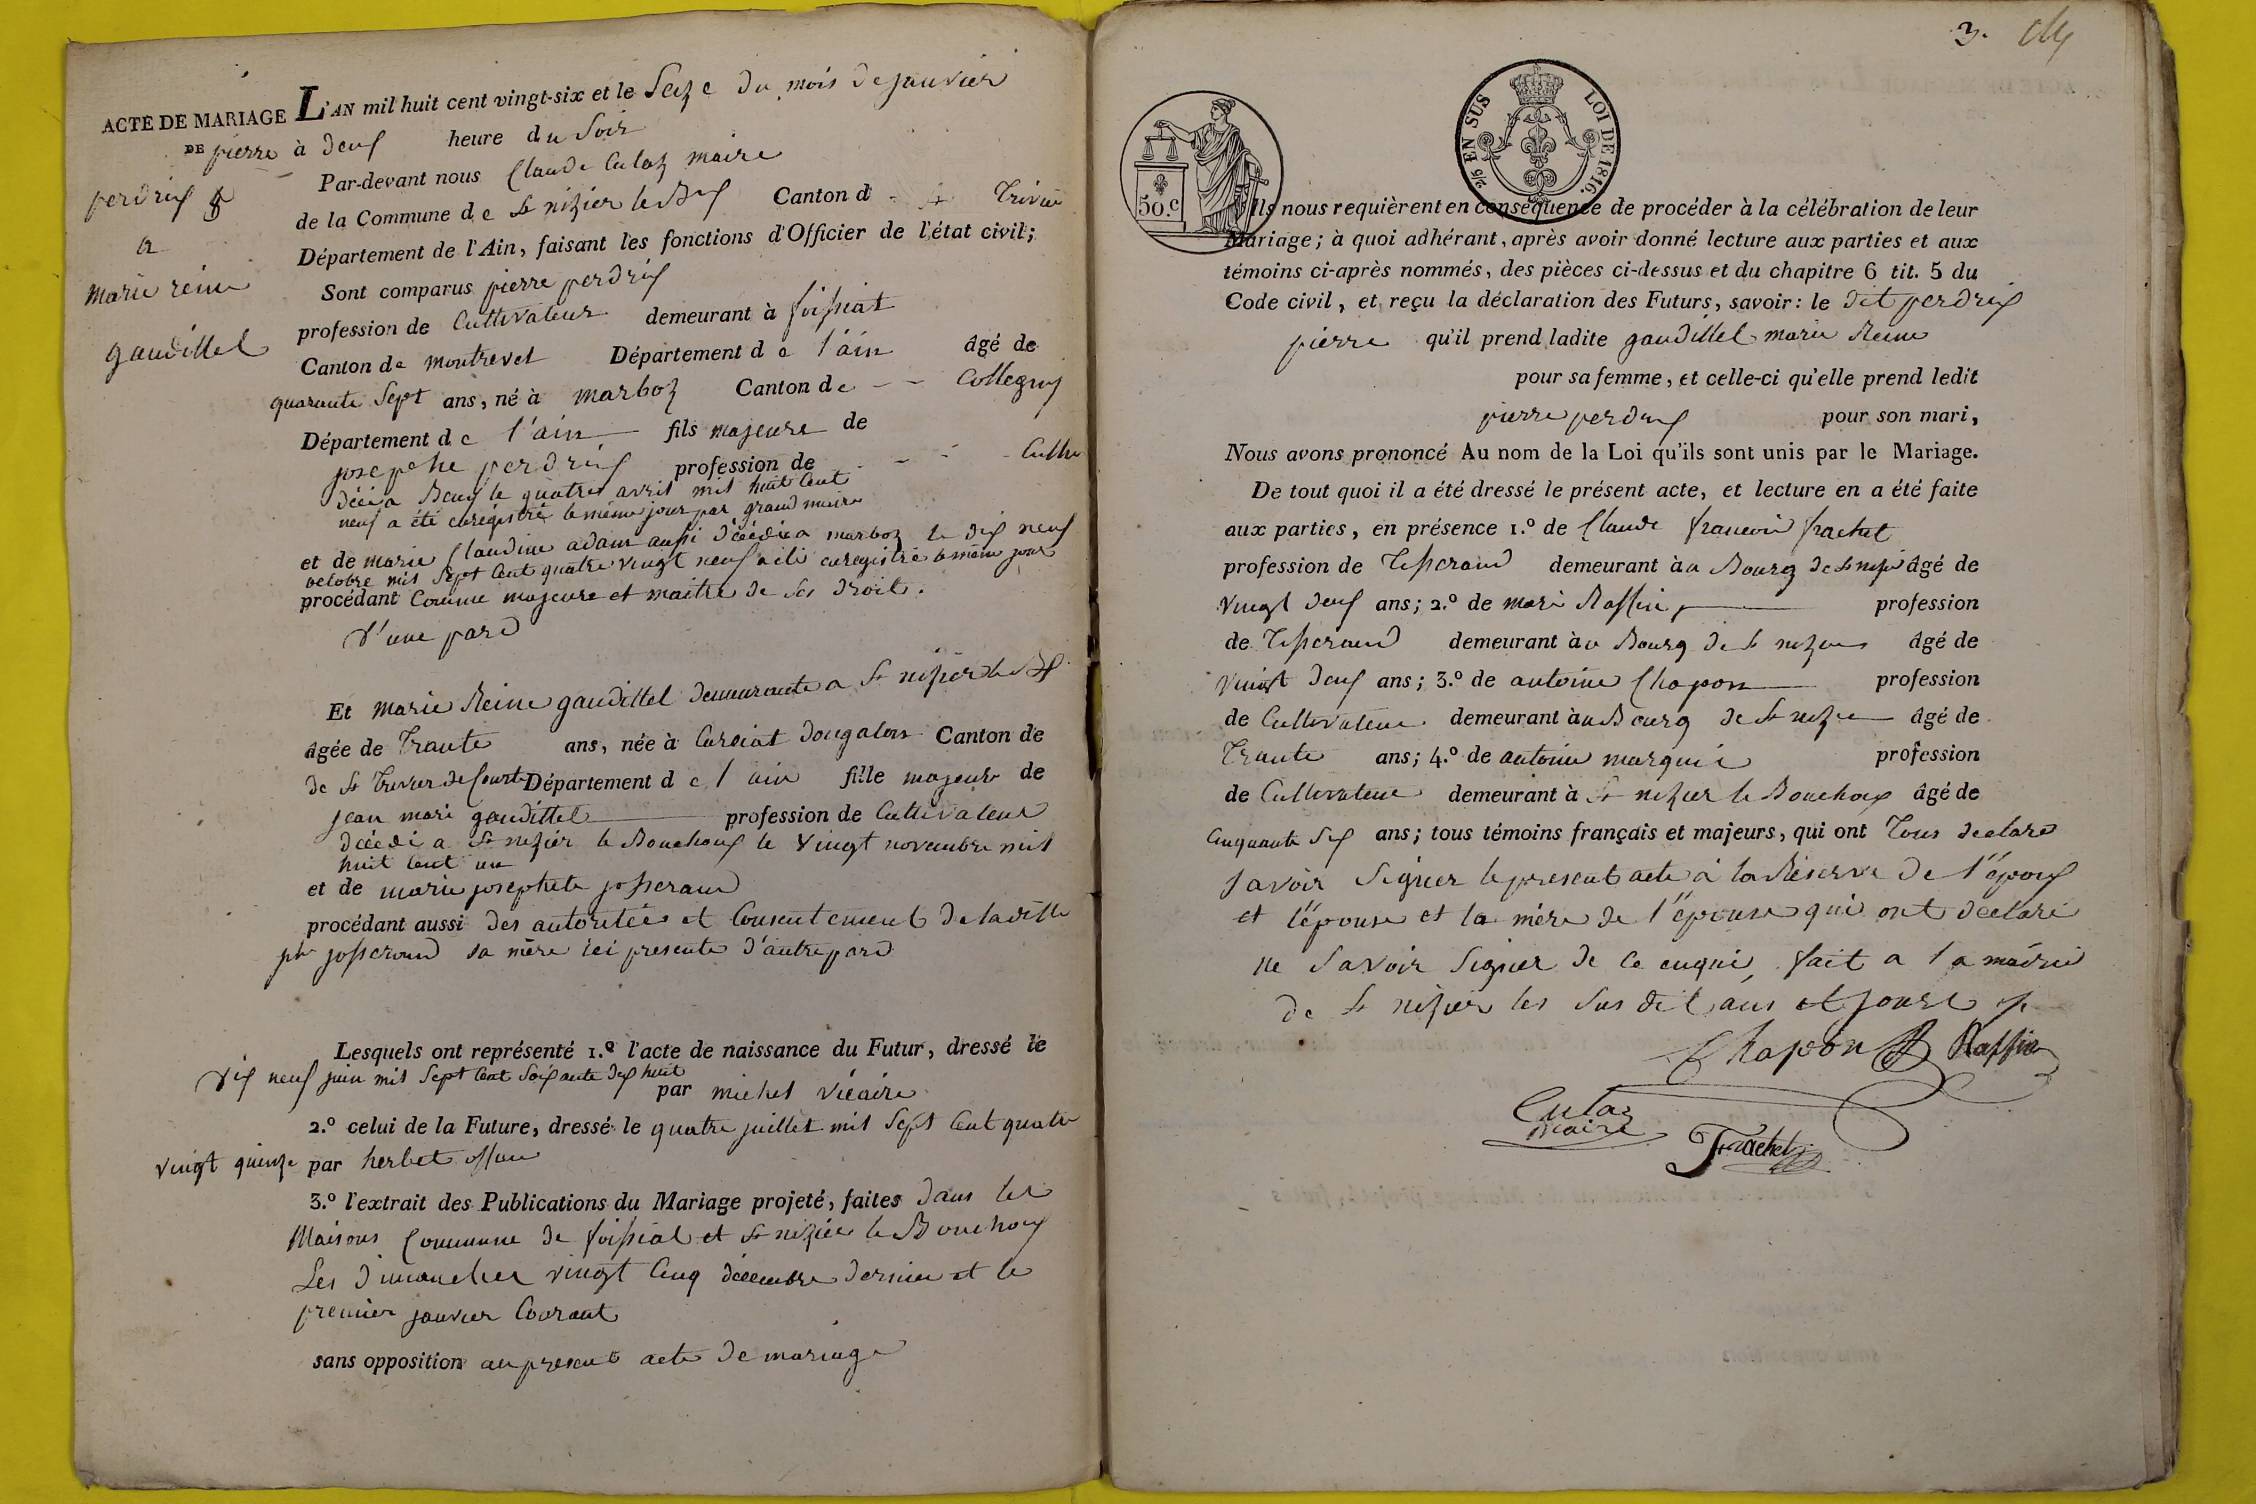 ACTE DE MARIAGE L'AN mil huit cent vingt-six et le Seize du mois de janvier
DE pierre à deux heure du Soir
perdrix
a
marie reine
gaudillel
Par-devant nous Claude Culaz maire
de la Commune de St nizier le Canton d St Trivier
Département de l'Ain, faisant les fonctions d'Officier de l'état civil;
Sont comparus pierre perdrix
profession de Cultivateur demeurant à foissiat
Canton de montrevel Département de l'ain âgé de
quarante Sept ans, né à marboz Canton de Collegny
Département de l'ain fils majeure de
josephe perdrix profession de Culti
le quatre avril mil huit Cent
neuf a été enregistré le même jour par grand maire
et de marie Claudine adam aussi décédée a marboz le dix neuf
octobre mil Sept Cent quatre vingt neuf enregistré le même jour
procédant Comme majeure et maitre de Ses droits.
d'une pard
Et marie Reine gaudillel demeurante a St nizier le
âgée de Trante ans, née à Curciat dongalon Canton de
de St Trivier de Courte Département de l'ain fille majeure de
jean marie gaudillel profession de Cultivateur
décédé a St nizier le Bouchoux le vingt novembre mil
huit Cent un
et de marie josephete josserand
procédant aussi des autorités et Consentement de ladite
josserand sa mère ici presente d'autre pard
Lesquels ont représenté 1.º l'acte de naissance du Futur, dressé le
dix neuf juin mil Sept Cent Soixante dix huit
par michel vicaire
2.º celui de la Future, dressé le quatre juillet mil Sept Cent quatre
vingt quinze par herbet
3.º l'extrait des Publications du Mariage projeté, faites dans les
Maisons Commune de foissiat et St nizier le Bouchoux
Les dimanches vingt Cinq décembre dernier et le
premier janvier Courant
sans opposition au present acte de mariage
3.
50.c
2/5 EN SUS LOI DE 1816.
Ils nous requièrent en conséquence de procéder à la célébration de leur
Mariage; à quoi adhérant, après avoir donné lecture aux parties et aux
témoins ci-après nommés, des pièces ci-dessus et du chapitre 6 tit. 5 du
Code civil, et reçu la déclaration des Futurs, savoir: le dit perdrix
pierre qu'il prend ladite gaudillel marie Reine
pour sa femme, et celle-ci qu'elle prend ledit
pierre perdrix pour son mari,
Nous avons prononcé Au nom de la Loi qu'ils sont unis par le Mariage.
De tout quoi il a été dressé le présent acte, et lecture en a été faite
aux parties, en présence 1.º de Claude francois frachet
profession de Tisserand demeurant à u Bourg de St nizié âgé de
vingt deux ans; 2.º de marie Raffin profession
de Tisserand demeurant à u Bourg de St nizier âgé de
vingt deux ans; 3.º de antoine Chapon profession
de Cultivateur demeurant à u Bourg de St nizie âgé de
Trante ans; 4.º de antoine marquis profession
de Cultivateur demeurant à St nizier le Bouchoux âgé de
Cinquante Six ans; tous témoins français et majeurs, qui ont Tous declaré
Savoir Signer le present acte à la Réserve de l'époux
et l'épouse et la mère de l'épouse qui ont declaré
ne Savoir Signer de ce enqui, fait a la mairie
de St nizier les Sus dit ans et jours
Chapon Raffin
Culaz
maire
Frachet